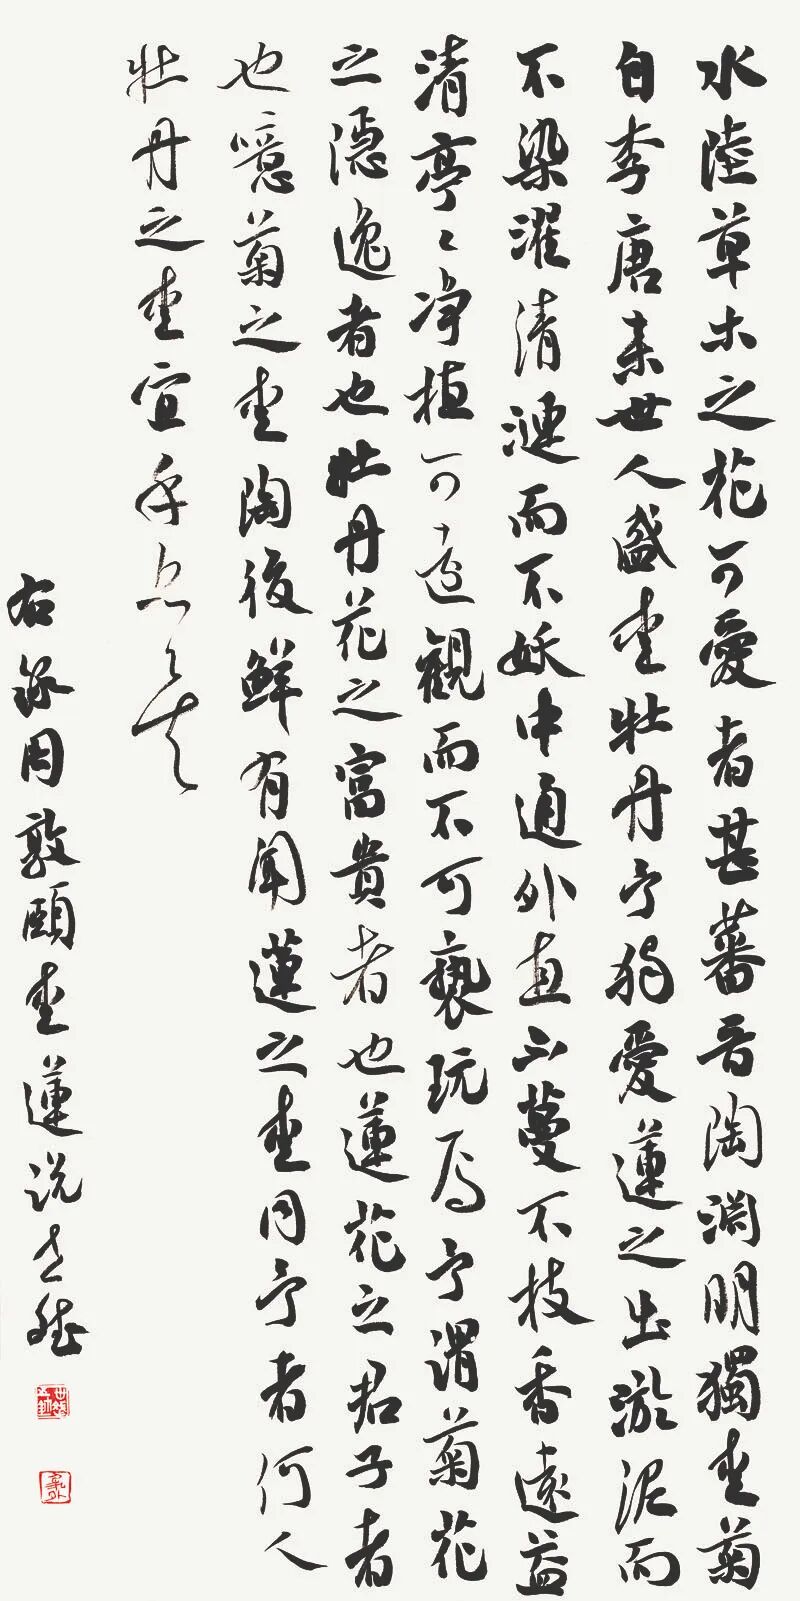 水陸草木之花可愛者甚蕃晋陶渊明獨爱菊
自李唐来世人盛爱牡丹予獨愛蓮之出淤泥而
不染濯清漣而不妖中通外直不蔓不枝香遠益
清亭〻净植可遠觀而不可褻玩焉予謂菊花
之隱逸者也牡丹花之富貴者也蓮花之君子者
也噫菊之爱陶後鮮有聞蓮之爱同予者何人
牡丹之爱宜乎衆矣
右录周敦頤爱蓮说